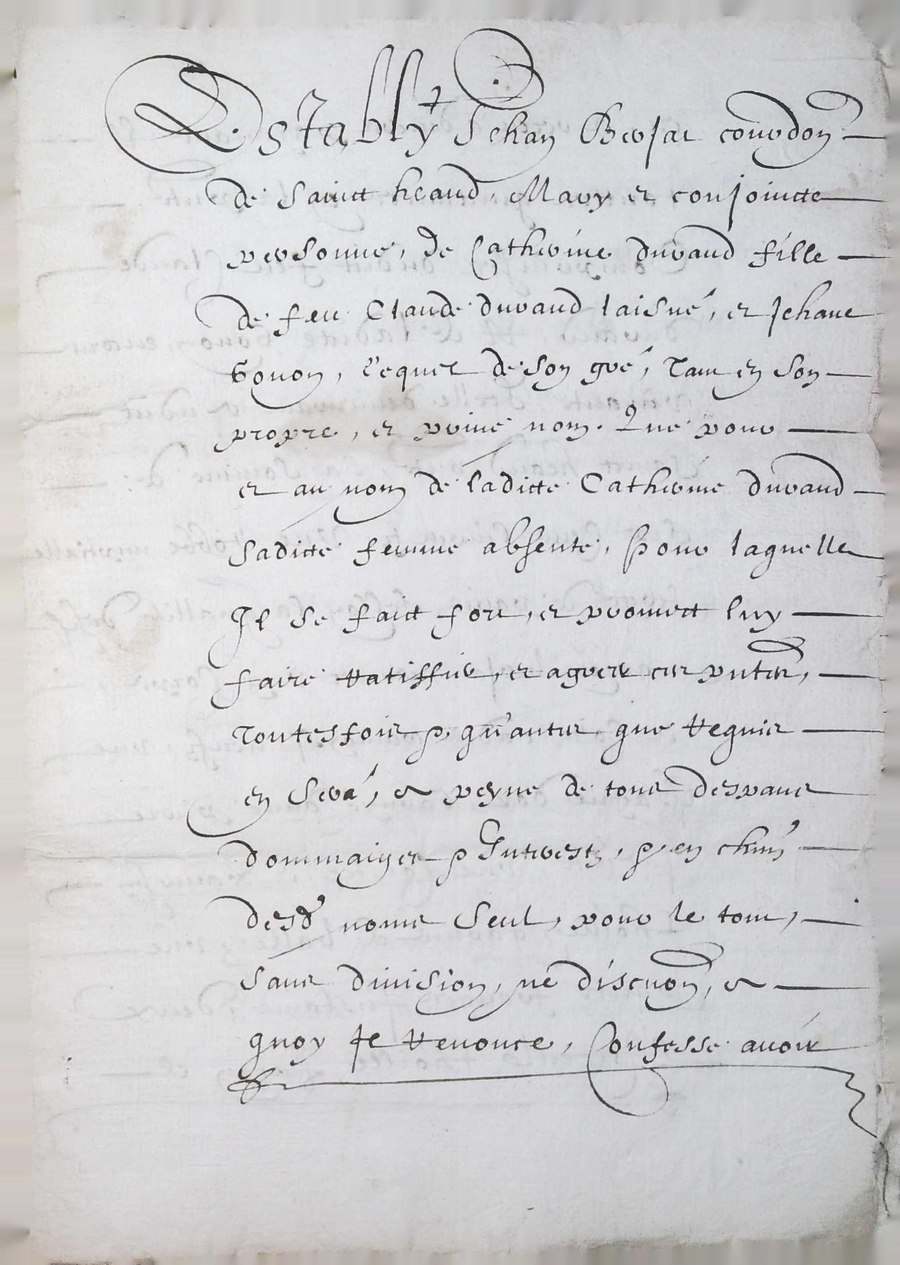 Establÿ Jehan Bersat courdon
de Sainct heand, Mary et conjoincte
personne, de Catherine durand fille
de feu Claude durand laisné, et Jehane
Govon, lequel de son gré, Tant en son
propre, et privé nom. Que pour
et au nom de ladicte Catherine durand
sadicte femme absente, pour laquelle
Il se faict fort, et promect luy
faire rattiffier, et agreer ces pntes,
Touttesfois et quantes que requis
en Sera, a peyne de tous despans
dommaiges et Interestz, et en chun
desd noms Seul, pour le tout,
sans division, ne discuon, a
quoy Je renonce, Confesse avoir